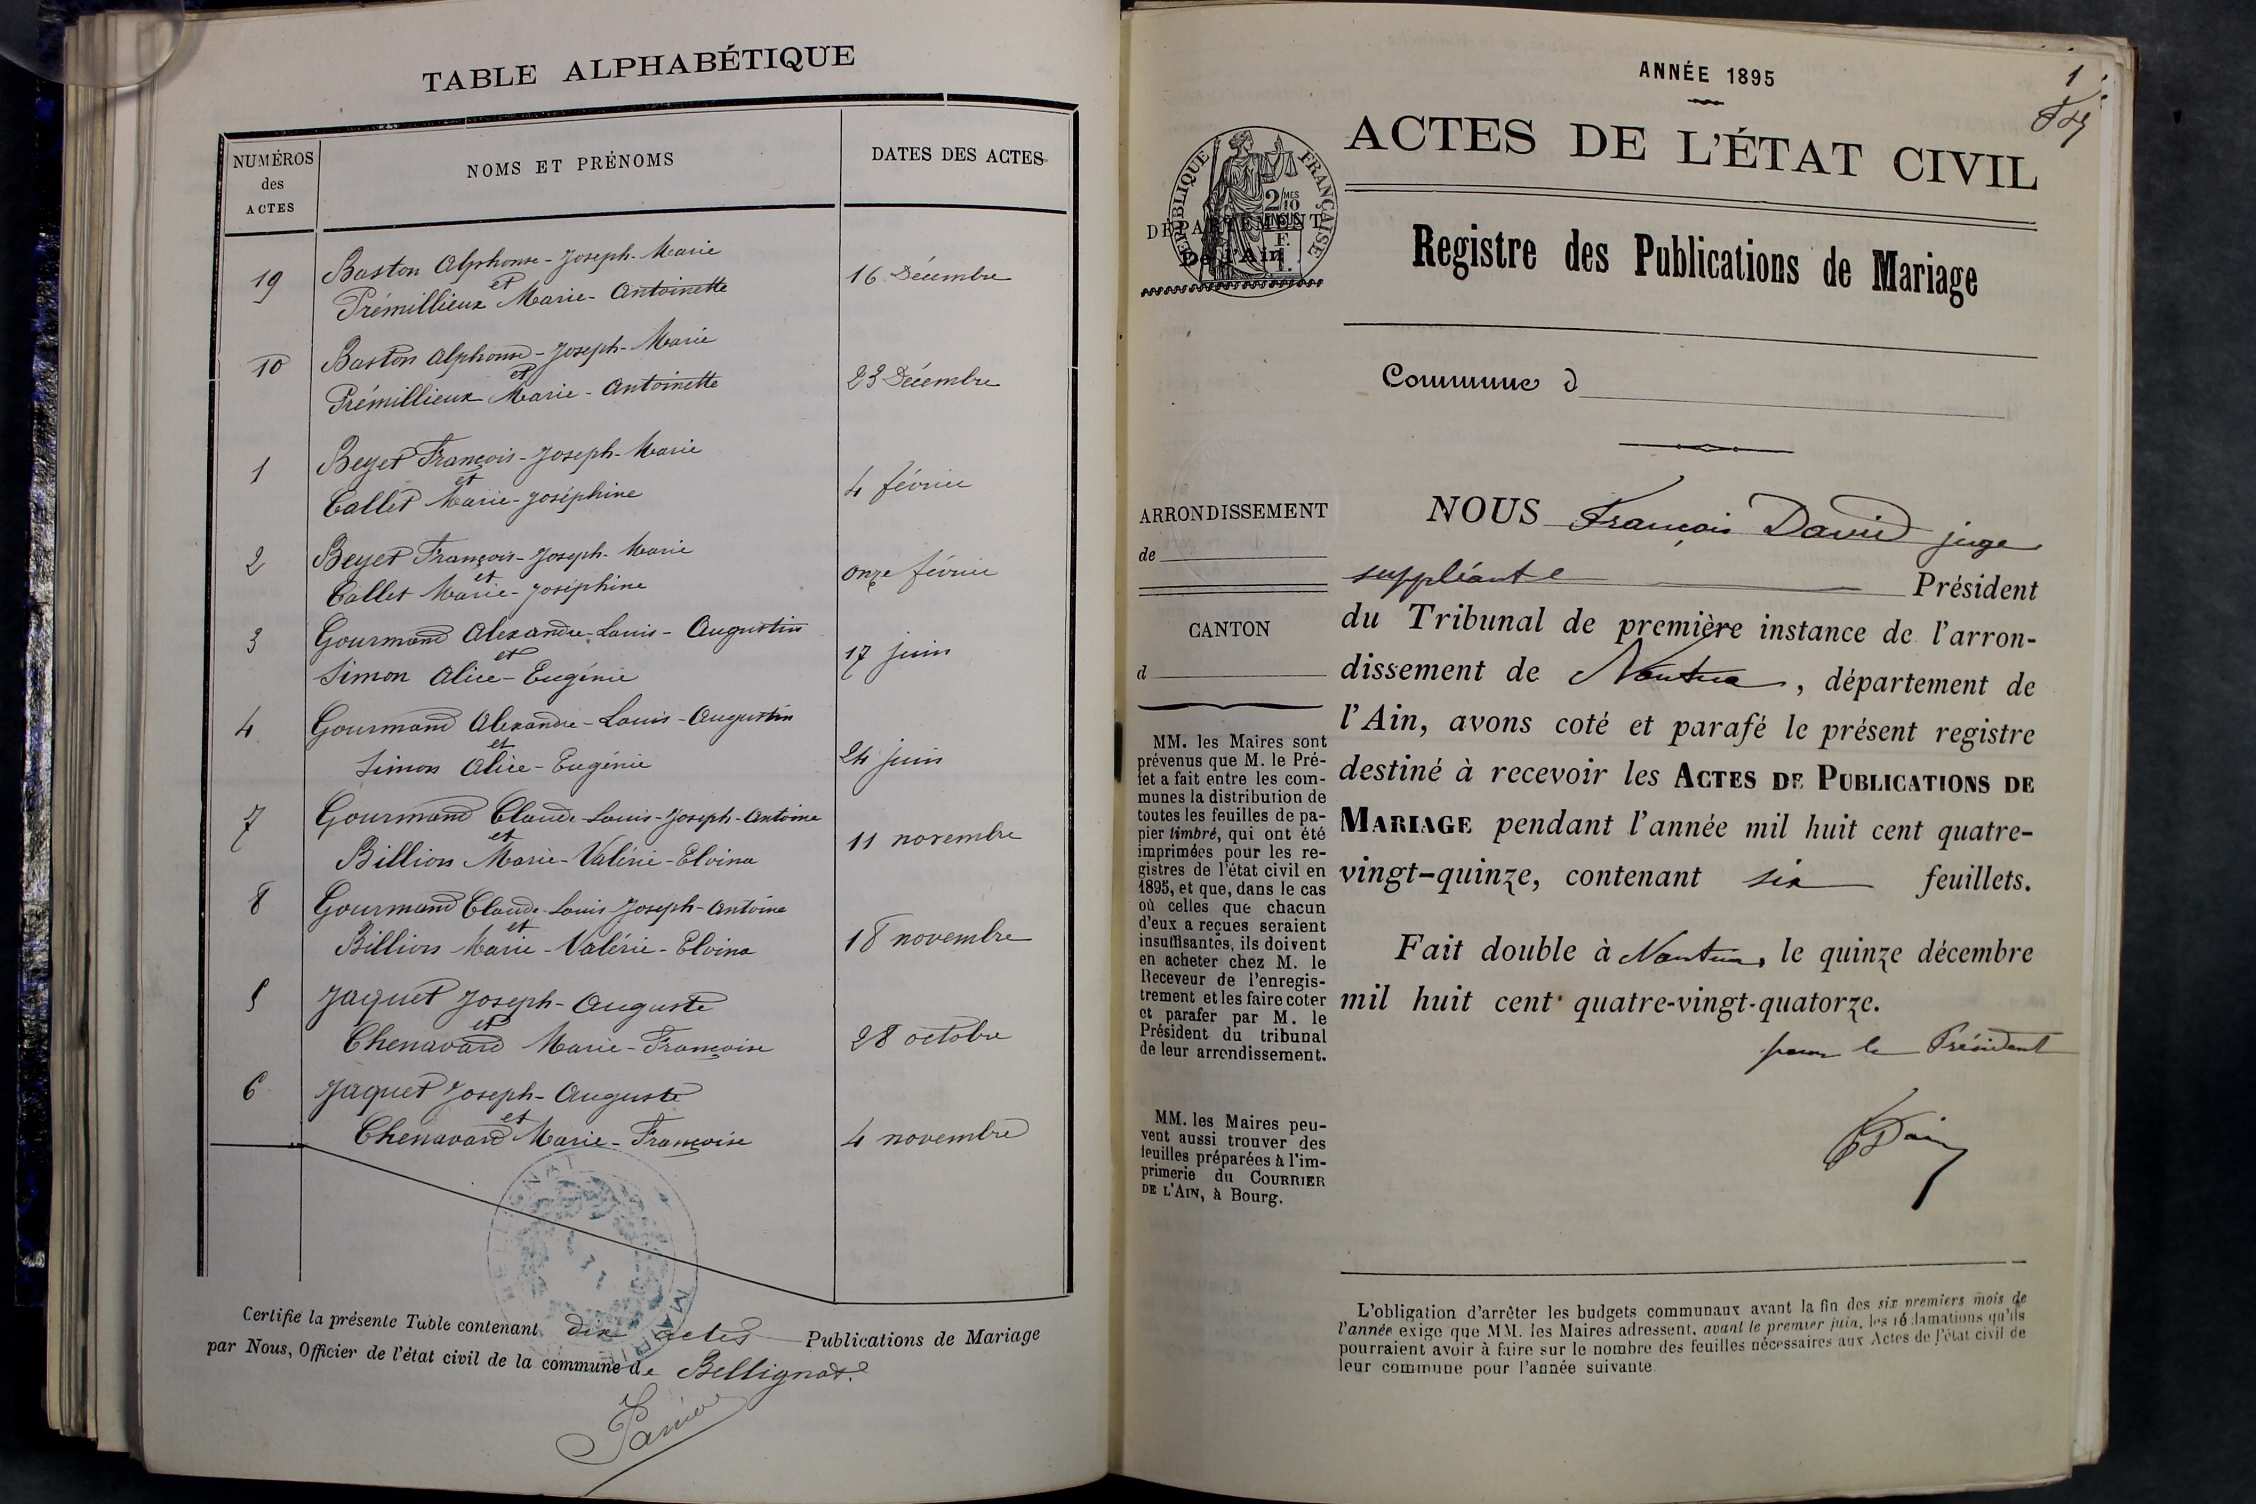 TABLE ALPHABÉTIQUE
NUMÉROS
des
ACTES
NOMS ET PRÉNOMS
DATES DES ACTES
19 Baston Alphonse-Joseph-Marie
et
Prémillieux Marie-Antoinette
16 Décembre
10 Baston Alphonse-Joseph-Marie
et
Prémillieux Marie-Antoinette
23 Décembre
1 Beyet François-Joseph-Marie
et
Callet Marie-Joséphine
4 février
2 Beyet François-Joseph-Marie
et
Callet Marie-Joséphine
onze février
3 Gourmand Alexandre-Louis-Augustin
et
Simon Alice-Eugénie
17 juin
4 Gourmand Alexandre-Louis-Augustin
et
Simon Alice-Eugénie
24 juin
7 Gourmand Claude-Louis-Joseph-Antoine
et
Billion Marie-Valérie-Elvina
11 novembre
8 Gourmand Claude-Louis-Joseph-Antoine
et
Billion Marie-Valérie-Elvina
18 novembre
5 Jaquet Joseph-Auguste
et
Chenavard Marie-Françoise
28 octobre
6 Jaquet Joseph-Auguste
et
Chenavard Marie-Françoise
4 novembre
MAIRIE
Certifié la présente Table contenant dix actes Publications de Mariage
par Nous, Officier de l'état civil de la commune de Bellignat.
1
ANNÉE 1895
ACTES DE L'ÉTAT CIVIL
RÉPUBLIQUE FRANÇAISE
2 MES
10
EN SUS
DÉPARTEMENT
De l'Ain
Registre des Publications de Mariage
Commune d
ARRONDISSEMENT
de
CANTON
d
MM. les Maires sont
prévenus que M. le Pré-
fet a fait entre les com-
munes la distribution de
toutes les feuilles de pa-
pier timbré, qui ont été
imprimées pour les re-
gistres de l'état civil en
1895, et que, dans le cas
où celles que chacun
d'eux a reçues seraient
insuffisantes, ils doivent
en acheter chez M. le
Receveur de l'enregis-
trement et les faire coter
et parafer par M. le
Président du tribunal
de leur arrondissement.
MM. les Maires peu-
vent aussi trouver des
feuilles préparées à l'im-
primerie du COURRIER
DE L'AIN, à Bourg.
NOUS François David juge
suppléant Président
du Tribunal de première instance de l'arron-
dissement de Nantua, département de
l'Ain, avons coté et parafé le présent registre
destiné à recevoir les ACTES DE PUBLICATIONS DE
MARIAGE pendant l'année mil huit cent quatre-
vingt-quinze, contenant six feuillets.
Fait double à Nantua, le quinze décembre
mil huit cent quatre-vingt-quatorze.
pour le Président
L'obligation d'arrêter les budgets communaux avant la fin des six premiers mois de
l'année exige que MM. les Maires adressent, avant le premier juin, les réclamations qu'ils
pourraient avoir à faire sur le nombre des feuilles nécessaires aux Actes de l'état civil de
leur commune pour l'année suivante